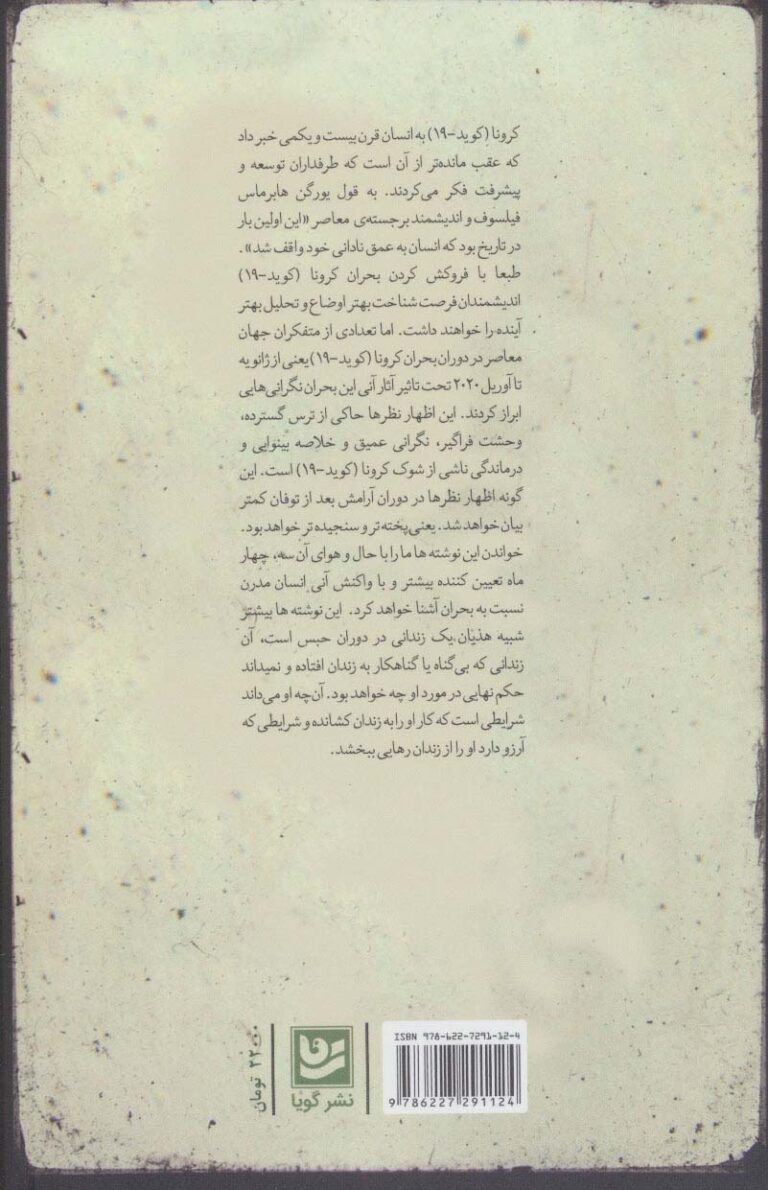 کرونا (کوید-۱۹) به انسان قرن بیست و یکمی خبر داد
که عقب مانده‌تر از آن است که طرفداران توسعه و
پیشرفت فکر می‌کردند. به قول یورگن هابرماس
فیلسوف و اندیشمند برجسته‌ی معاصر «این اولین بار
در تاریخ بود که انسان به عمق نادانی خود واقف شد».
طبعا با فروکش کردن بحران کرونا (کوید-۱۹)
اندیشمندان فرصت شناخت بهتر اوضاع و تحلیل بهتر
آینده را خواهند داشت. اما تعدادی از متفکران جهان
معاصر در دوران بحران کرونا (کوید-۱۹) یعنی از ژانویه
تا آوریل ۲۰۲۰ تحت تاثیر آثار آنی این بحران نگرانی‌هایی
ابراز کردند. این اظهار نظرها حاکی از ترس گسترده،
وحشت فراگیر، نگرانی عمیق و خلاصه بینوایی و
درماندگی ناشی از شوک کرونا (کوید-۱۹) است. این
گونه اظهار نظرها در دوران آرامش بعد از توفان کمتر
بیان خواهد شد. یعنی پخته تر و سنجیده تر خواهد بود.
خواندن این نوشته ها ما را با حال و هوای آن سه، چهار
ماه تعیین کننده بیشتر و با واکنش آنی انسان مدرن
نسبت به بحران آشنا خواهد کرد. این نوشته ها بیشتر
شبیه هذیان یک زندانی در دوران حبس است، آن
زندانی که بی‌گناه یا گناهکار به زندان افتاده و نمیداند
حکم نهایی در مورد او چه خواهد بود. آن‌چه او می‌داند
شرایطی است که کار او را به زندان کشانده و شرایطی که
آرزو دارد او را از زندان رهایی ببخشد.
ISBN 978-622-7291-12-4
9 786227 291124
نشر گویا
تومان